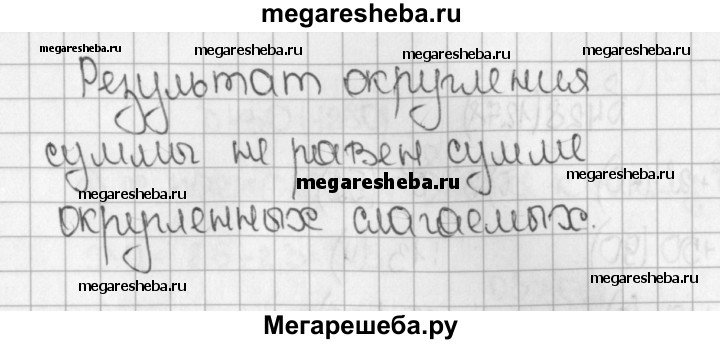 megaresheba.ru
megaresheba.ru megaresheba.ru megaresheba.ru
Результат округления
megaresheba.ru megaresheba.ru megaresheba.ru
суммы не равен сумме
megaresheba.ru megaresheba.ru megaresheba.ru
округленных слагаемых.
megaresheba.ru megaresheba.ru megaresheba.ru
Мегарешеба.ру